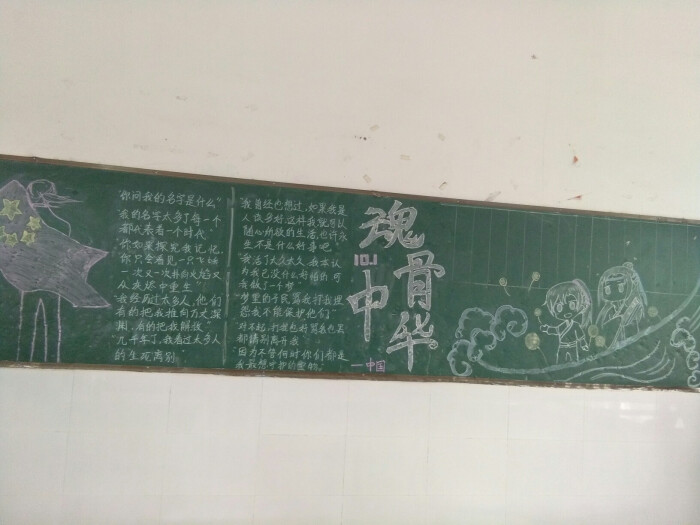 "你问我的名字是什么"
"我的名字太多了,每一个
都代表着一个时代"
"你如果探究我记忆,
你只会看见一只飞蛾
一次又一次扑向火焰又
从废墟中重生"
"我经历过太多人,他们
有的把我推向万丈深
渊,有的把我照顾"
"九千年了,我看过太多人
的生死离别"
"我曾经也想过,如果我是
人该多好,这样我就可以
随心所欲的生活,也许永
生不是什么好事吧"
"我活了太久太久,我本认
为我已没什么好怕的,可
有做了一个梦
"梦里的子民骂我打我埋
怨我不能保护他们"
"对不起,打我也好骂我也罢
都请别离开我"
"因为不管何时你们都是
我最想守护的宝物。"
—中国
魂
骨
10.1
中
华